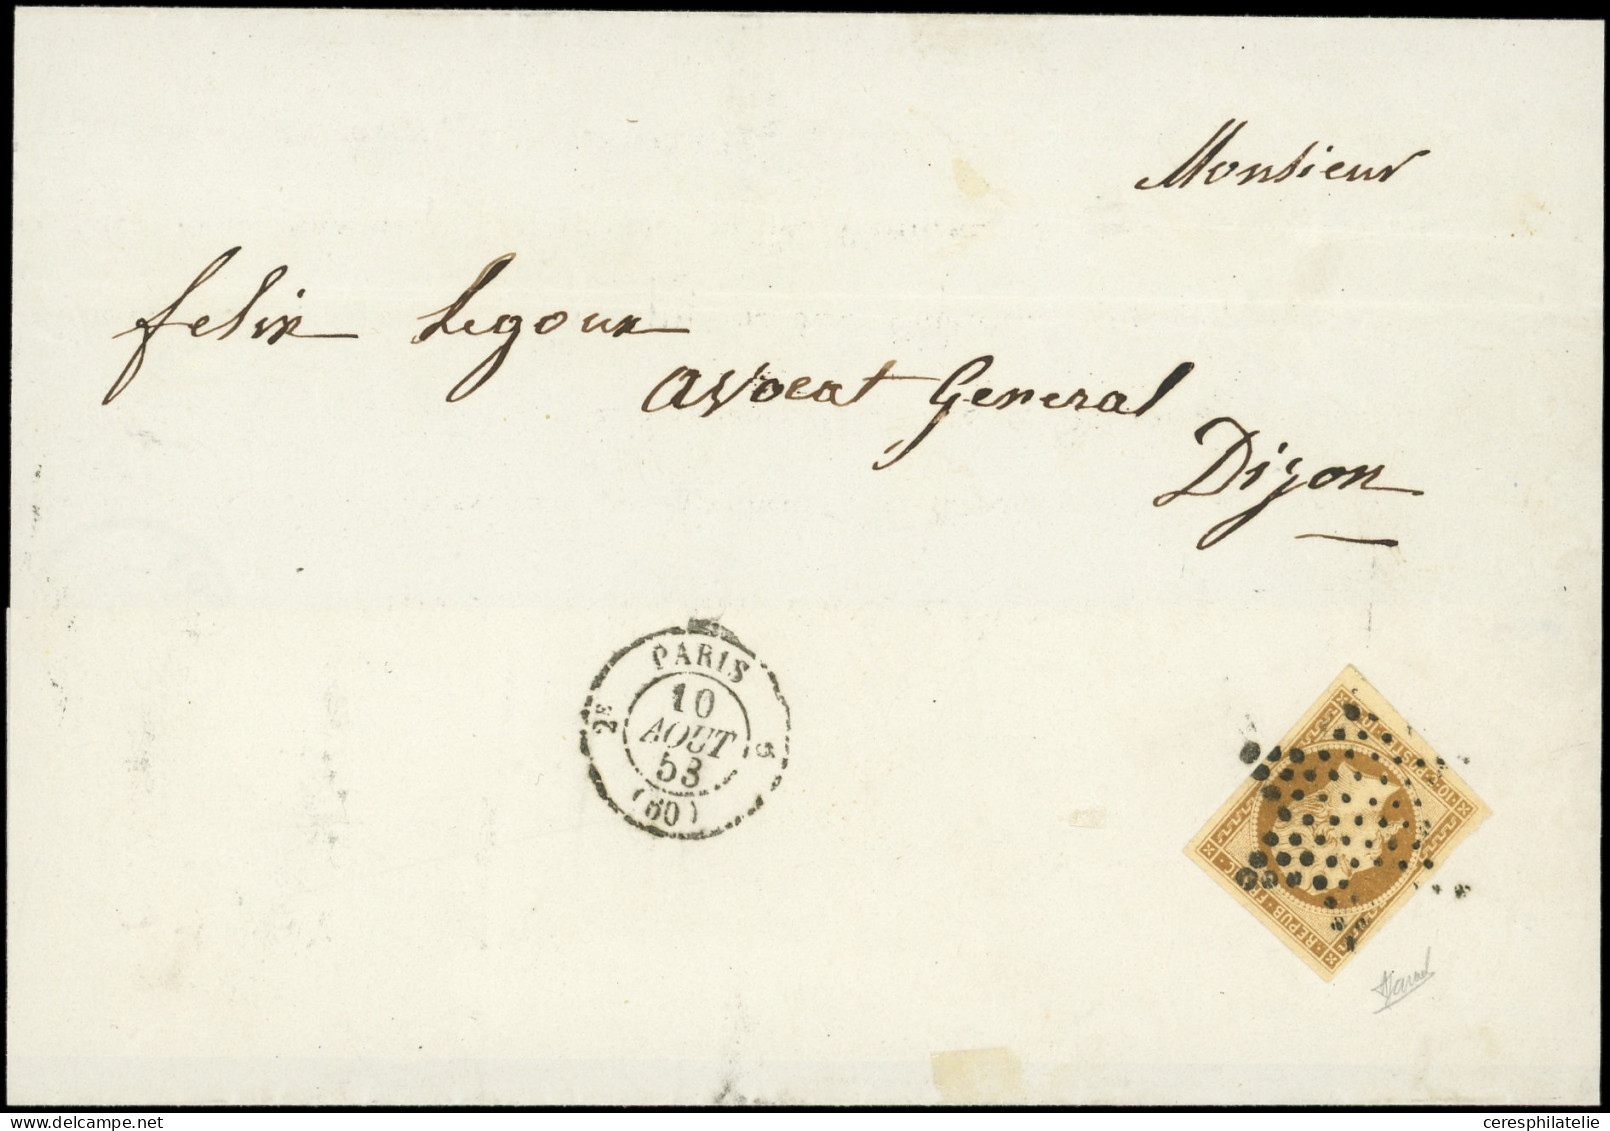 Monsieur
felix Legoux
avocat General
Dijon
PARIS
2E
5
10
AOUT
53
(60)
REPUB · FRANC
10 · POSTES · 10
ceresphilatelie